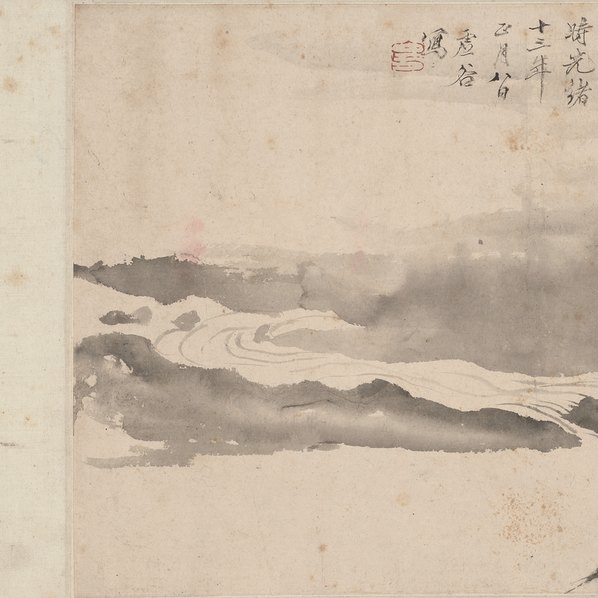 時光緒
十三年
正月八日
虛谷
寫